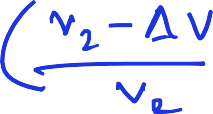 v₂ - Δ V
vₑ